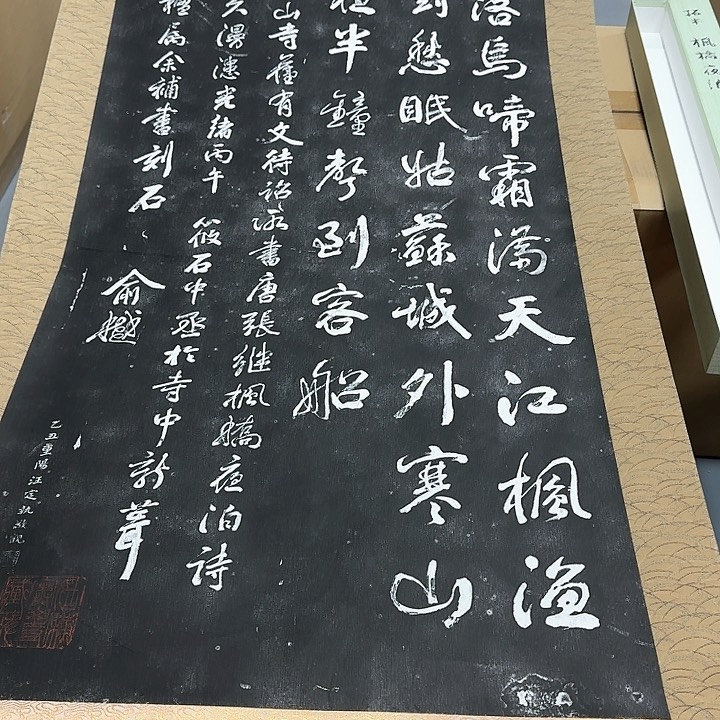 落烏啼霜滿天江楓漁
對愁眠姑蘇城外寒山
夜半鐘聲到客船
山寺舊有文待詔所書唐張繼楓橋夜泊詩
久漫漶光緒丙午 筱石中丞於寺中新葺
楹屬余補書刻石 俞樾
乙丑重陽汪定執
拓本 楓橋夜泊